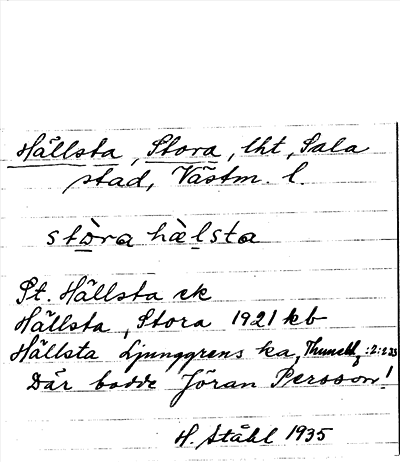 Hällsta, Stora, lht, Sala
stad, Västm. l.
stòra hàlsta
St. Hällsta ek
Hällsta, Stora 1921 kb
Hällsta Ljunggrens ka, :2:233
Där bodde Jöran Persson!
H. Ståhl 1935